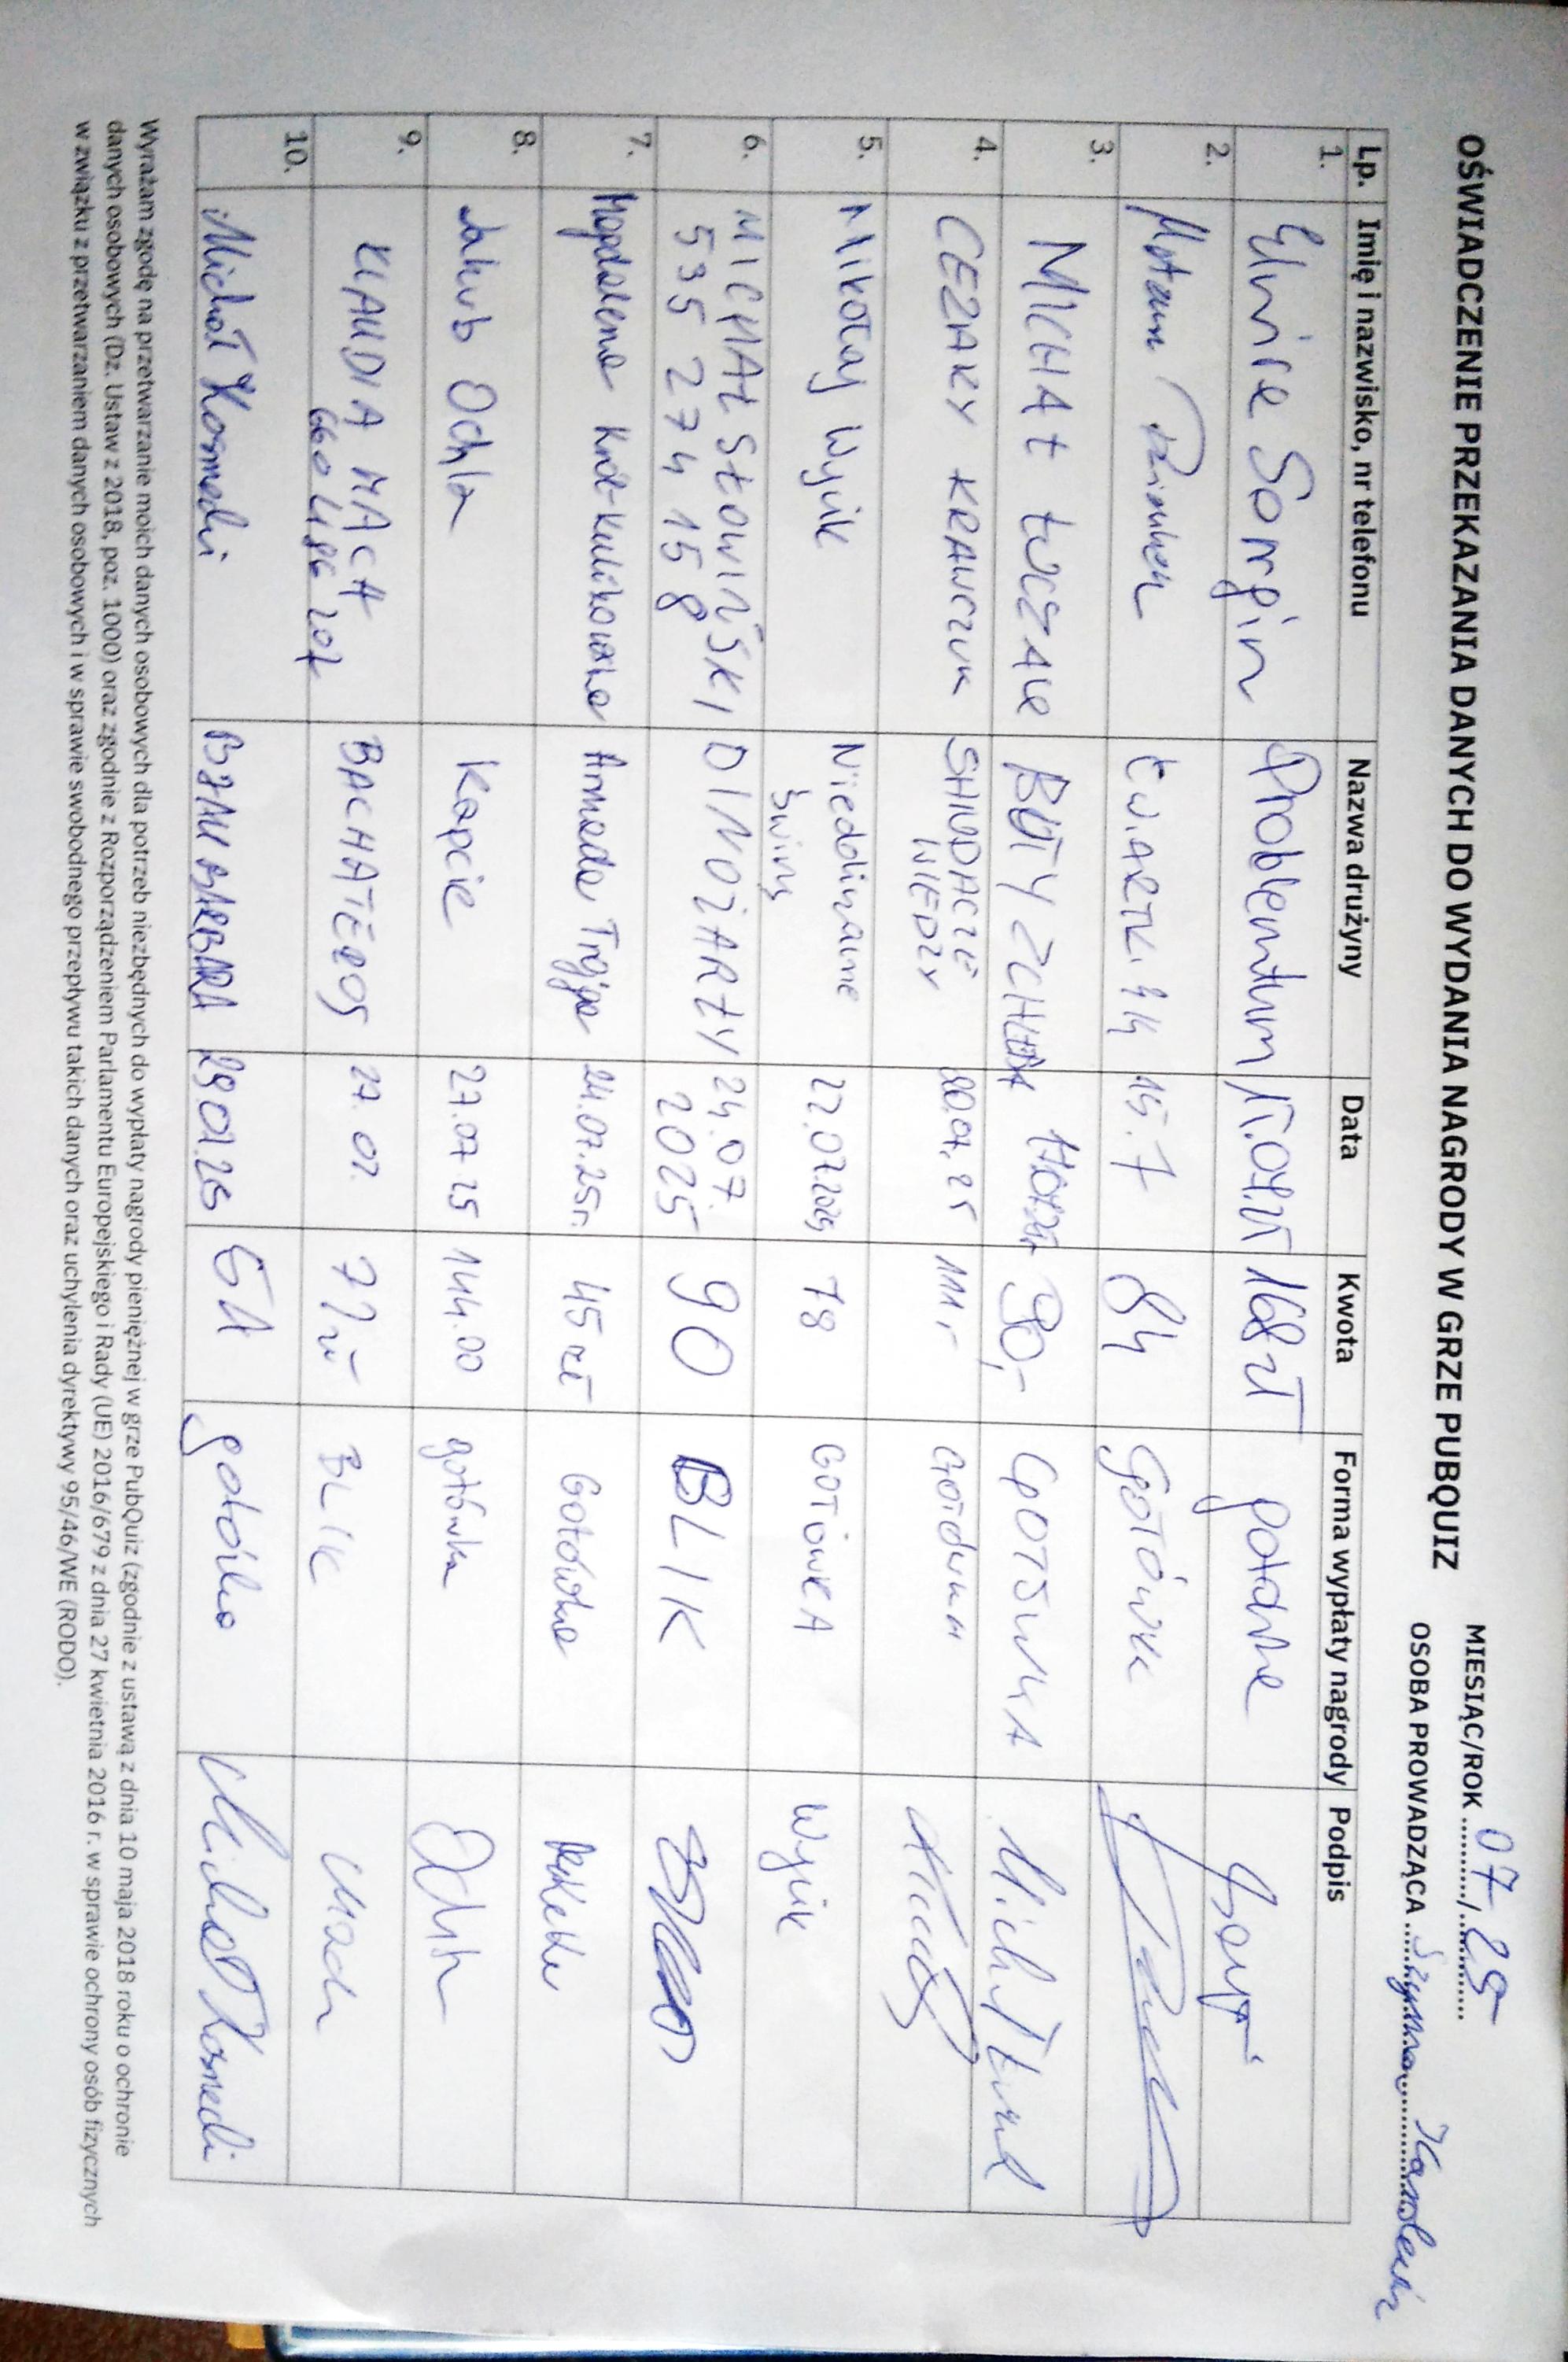 OŚWIADCZENIE PRZEKAZANIA DANYCH DO WYDANIA NAGRODY W GRZE PUBQUIZ
MIESIĄC/ROK 07/25
OSOBA PROWADZĄCA Szymon
Lp. Imię i nazwisko, nr telefonu Nazwa drużyny Data Kwota Forma wypłaty nagrody Podpis
1. Problemtum 168 zł
2. Ćwiartki 3/4 15.7 84 GOTÓWKA
3. MICHAŁ 90,- GOTÓWKA Michał
4. CEZARY KRAWCZUK WIEDZY 111,- GOTÓWKA
5. Mikołaj Wycik Niedolizane 78 GOTÓWKA Wycik
świny
6. MICHAŁ SŁOWIŃSKI DINOŻARŁY 24.07. 90 BLIK
535 274 158 2025
7. Magdalena Król-Kulikowska Armeda Trójga 24.07.25r. 45 zł Gotówka
8. Jakub Ochla Kapcie 27.07 25 144.00 gotówka Ochla
9. KLAUDIA MACH BACHATEROS 27.07. BLIK Mach
660 486 207
10. Michał BARBARA 51 gotówka Michał
Wyrażam zgodę na przetwarzanie moich danych osobowych dla potrzeb niezbędnych do wypłaty nagrody pieniężnej w grze PubQuiz (zgodnie z ustawą z dnia 10 maja 2018 roku o ochronie
danych osobowych (Dz. Ustaw z 2018, poz. 1000) oraz zgodnie z Rozporządzeniem Parlamentu Europejskiego i Rady (UE) 2016/679 z dnia 27 kwietnia 2016 r. w sprawie ochrony osób fizycznych
w związku z przetwarzaniem danych osobowych i w sprawie swobodnego przepływu takich danych oraz uchylenia dyrektywy 95/46/WE (RODO).